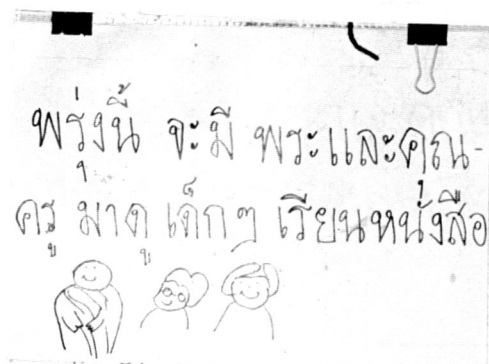 พรุ่งนี้ จะมี พระและคุณ-
ครู มาดู เด็กๆ เรียนหนังสือ